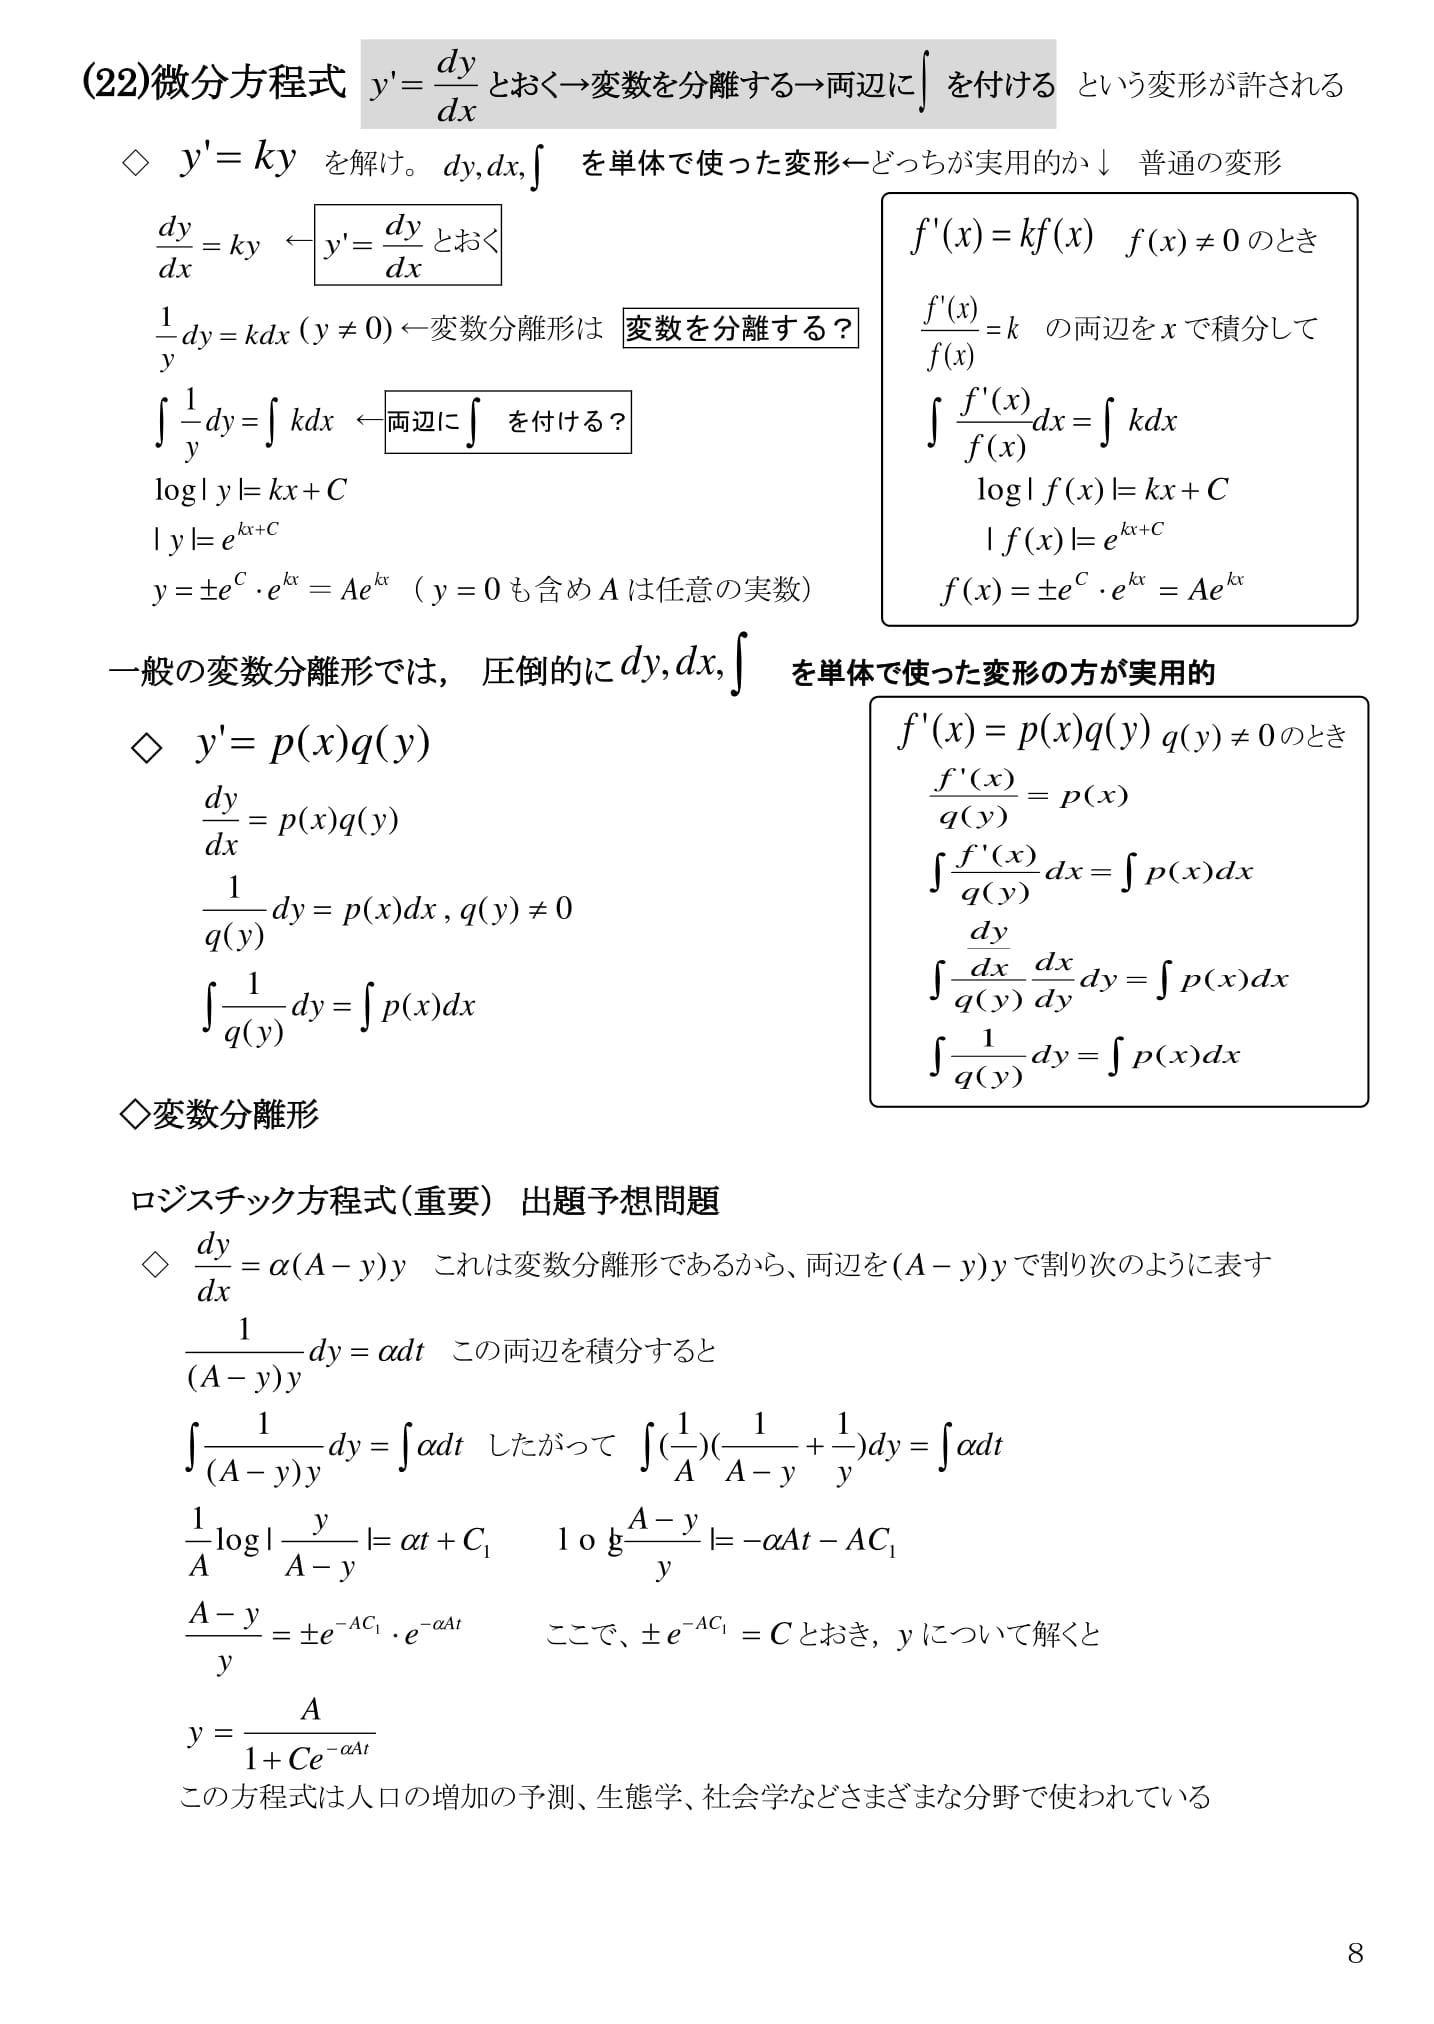 (22)微分方程式 y'= dy/dx とおく→変数を分離する→両辺に∫ を付ける という変形が許される
◇ y'= ky を解け。 dy, dx, ∫ を単体で使った変形←どっちが実用的か↓ 普通の変形
dy/dx = ky ← y'= dy/dx とおく
1/y dy = kdx ( y ≠ 0) ←変数分離形は 変数を分離する？
∫ 1/y dy = ∫ kdx ←両辺に∫ を付ける？
log | y |= kx + C
| y |= e^{kx+C}
y = ±e^C · e^{kx} = Ae^{kx} （ y = 0 も含め A は任意の実数）
f '(x) = kf (x) f (x) ≠ 0 のとき
f '(x)/f (x) = k の両辺を x で積分して
∫ f '(x)/f (x) dx = ∫ kdx
log | f (x) |= kx + C
| f (x) |= e^{kx+C}
f (x) = ±e^C · e^{kx} = Ae^{kx}
一般の変数分離形では, 圧倒的に dy, dx, ∫ を単体で使った変形の方が実用的
◇ y'= p(x)q(y)
dy/dx = p(x)q(y)
1/q(y) dy = p(x)dx , q(y) ≠ 0
∫ 1/q(y) dy = ∫ p(x)dx
f '(x) = p(x)q(y) q(y) ≠ 0 のとき
f '(x)/q(y) = p(x)
∫ f '(x)/q(y) dx = ∫ p(x)dx
∫ (dy/dx)/q(y) dx/dy dy = ∫ p(x)dx
∫ 1/q(y) dy = ∫ p(x)dx
◇変数分離形
ロジスチック方程式（重要） 出題予想問題
◇ dy/dx = α(A − y)y これは変数分離形であるから、両辺を(A − y)y で割り次のように表す
1/((A − y)y) dy = αdt この両辺を積分すると
∫ 1/((A − y)y) dy = ∫ αdt したがって ∫ (1/A)(1/(A − y) + 1/y)dy = ∫ αdt
1/A log | y/(A − y) |= αt + C₁ log | (A − y)/y |= −αAt − AC₁
(A − y)/y = ±e^{−AC₁} · e^{−αAt} ここで、± e^{−AC₁} = C とおき, y について解くと
y = A/(1 + Ce^{−αAt})
この方程式は人口の増加の予測、生態学、社会学などさまざまな分野で使われている
8